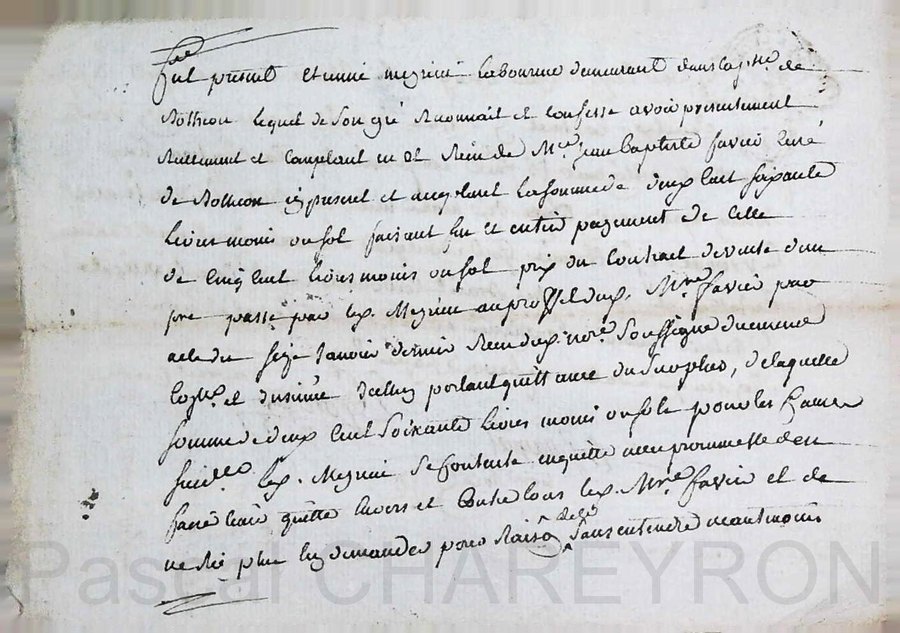 fut présent etienne mezeiné laboureur demeurant dans la psse. de
lequel de son gré reconnait et confesse avoir présentement
réellement et comptant eu et Reçu de Mre. jean baptiste favier curé
de cy présent et acceptant la somme de deux cent soixante
livres moins un sol faisant fin et entier payement de celle
de cinq cent livres moins un sol prix du contrat de vente d'un
pré passé par led. au proffit dud. Mre. favier par
acte du seize Janvier dernier Reçu dud. nore. soussigné duement
et insinué portant quittance du surplus, de laquelle
somme de deux cent soixante livres moins un sol pour les causes
led. se contente en quitte avec promesse d'en
faire tenir quitte envers et contre tous led. Mre. favier et de
ne Rien plus luy demander pour Raison de ce sans entendre neantmoins
Pascal CHAREYRON